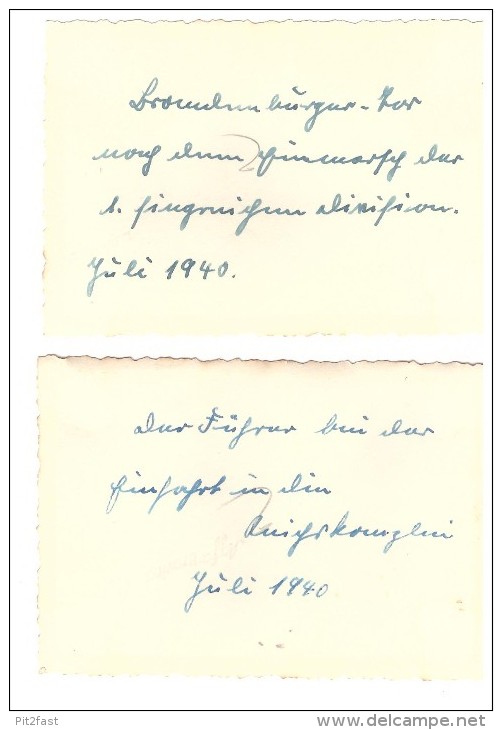 Brandenburger-Tor
nach dem Einmarsch der
1. siegreichen Division.
Juli 1940.
Der Führer bei der
Einfahrt in die
Reichskanzlei
Juli 1940
Pit2fast
www.delcampe.net